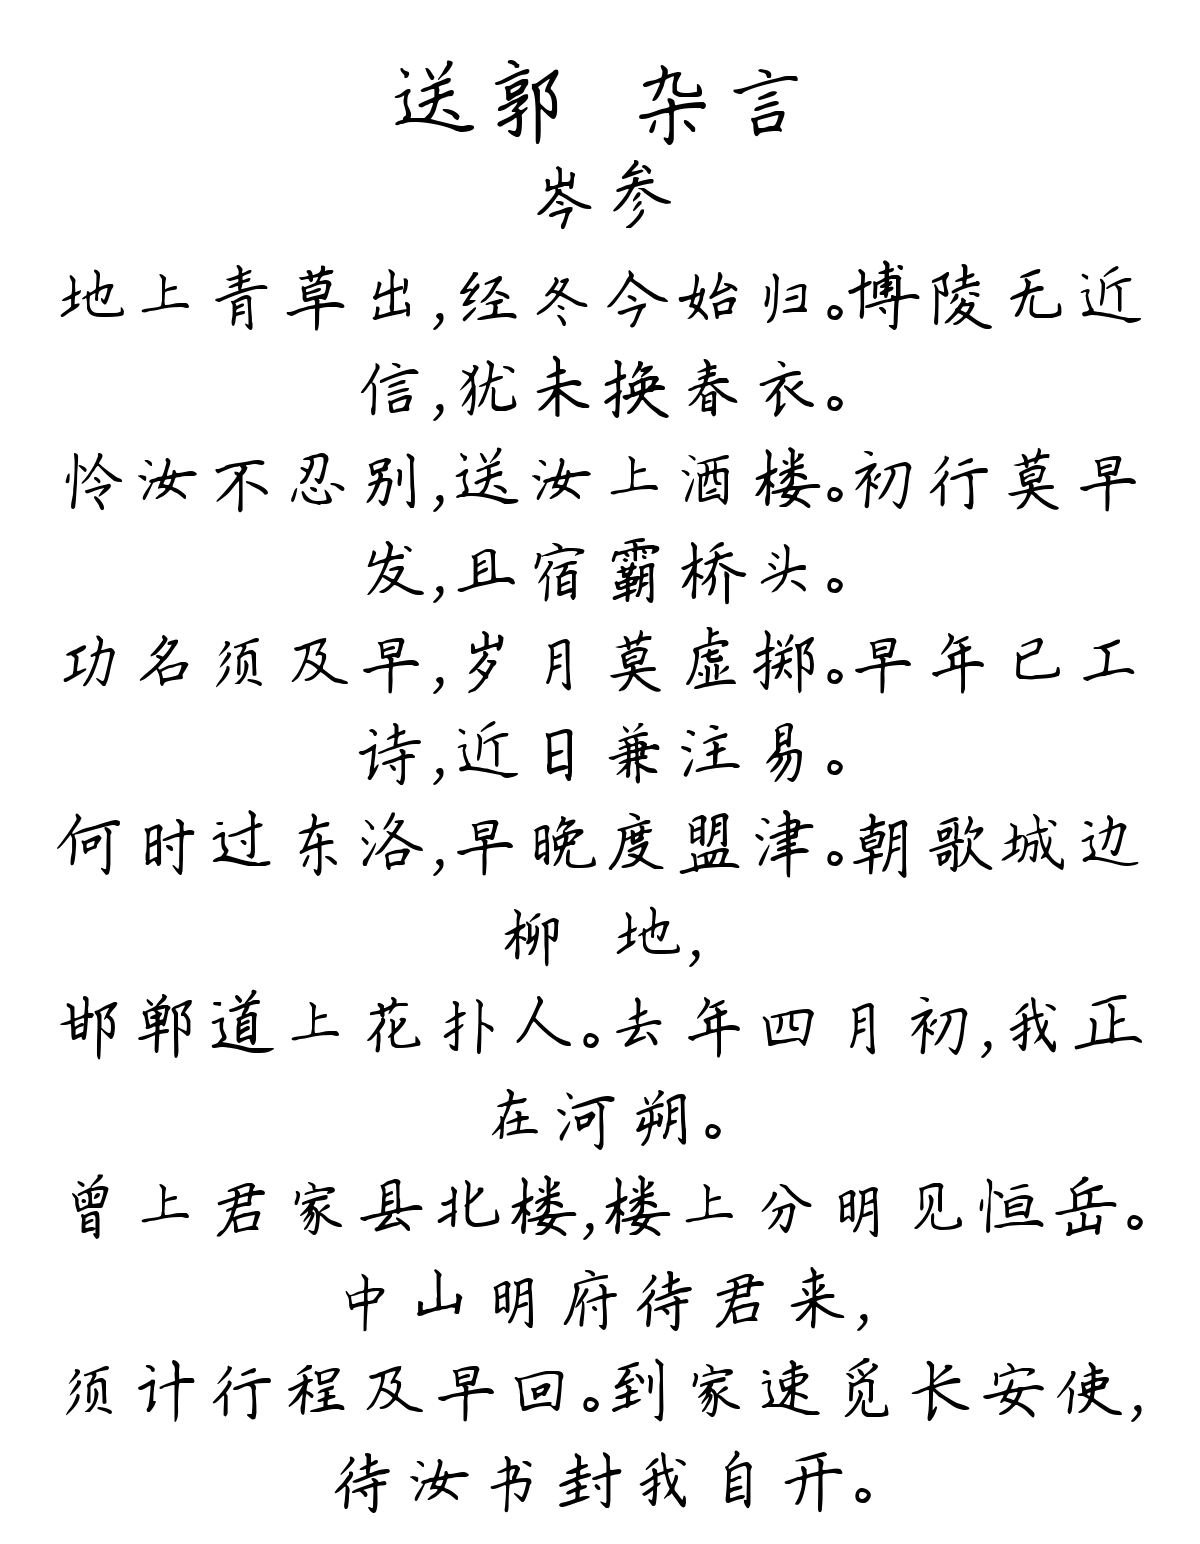 送郭 杂言
岑参
地上青草出,经冬今始归。博陵无近
信,犹未换春衣。
怜汝不忍别,送汝上酒楼。初行莫早
发,且宿霸桥头。
功名须及早,岁月莫虚掷。早年已工
诗,近日兼注易。
何时过东洛,早晚度盟津。朝歌城边
柳 地,
邯郸道上花扑人。去年四月初,我正
在河朔。
曾上君家县北楼,楼上分明见恒岳。
中山明府待君来,
须计行程及早回。到家速觅长安使,
待汝书封我自开。